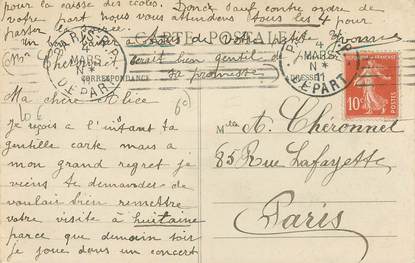 pour la caisse des écoles. Donc sauf contre ordre de
votre part nous vous attendons tous les 4 pour
passer la
CARTE POSTALE
serait bien gentil de
CORRESPONDANCE
sa promesse
ADRESSE
PARIS
MARS
N*
DEPART
PARIS
4
MARS
N*
11
DEPART
10c
Ma chère Alice
Je reçois à l'instant ta
gentille carte mais a
mon grand regret je
viens te demander de
vouloir bien remettre
votre visite à huitaine
parce que demain soir
je joue dans un concert
Mlle A. Chéronnet
85 Rue Lafayette
Paris